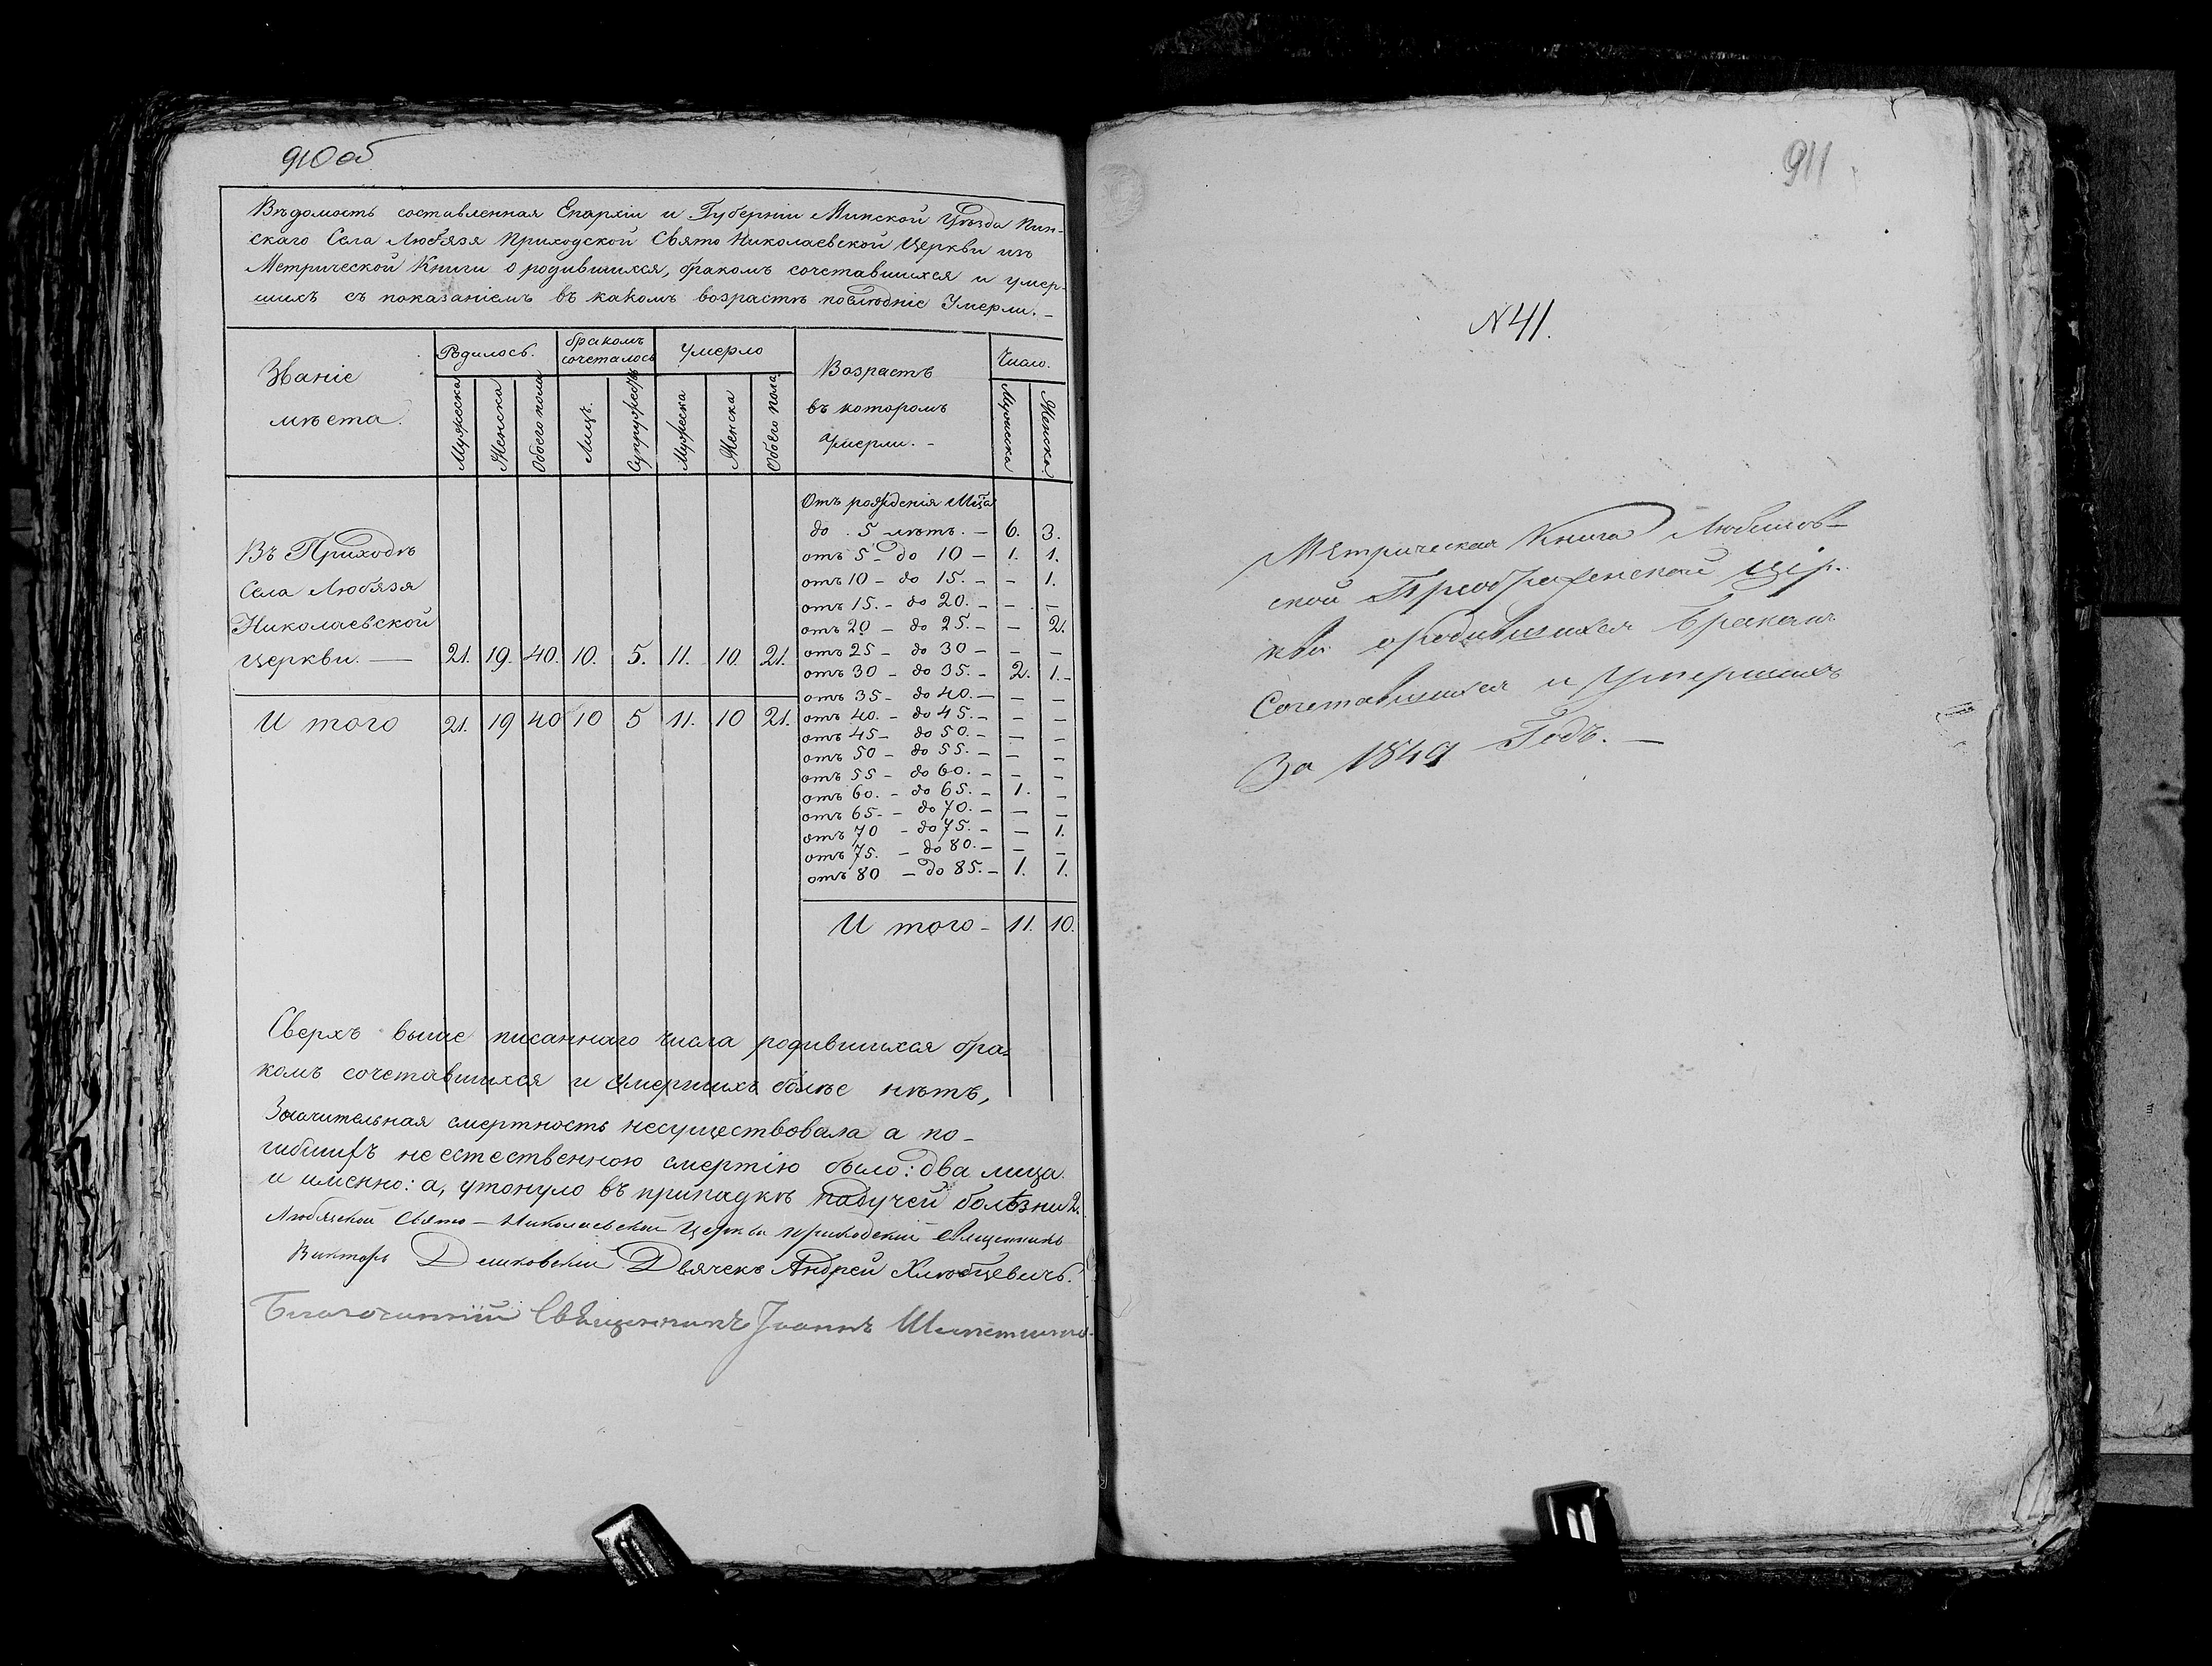 910 об
Вѣдомость составленная Епархіи и Губерніи Минской Уѣзда Пин-
скаго Села Любязя Приходской Свято Николаевской Церкви изъ
Метрической Книги о родившихся, бракомъ сочетавшихся и умер-
шихъ съ показаніемъ въ какомъ возрастѣ послѣдніе Умерли. –
Званіе
мѣста.
Родилось.
бракомъ
сочеталось
Умерло
Возрастъ
въ которомъ
Умерли. –
Число.
Мужеска
Женска
Обоего пола
Лицъ.
Супружествъ
Мужеска
Женска
Обоего пола
Мужеска
Женска
Въ Приходѣ
Села Любязя
Николаевской
Церкви. — 21. 19. 40. 10. 5. 11. 10. 21.
И того 21. 19 40 10 5 11. 10 21.
Отъ рожденія
до 5 лѣтъ. – 6. 3.
отъ 5 – до 10 – 1. 1.
отъ 10 – до 15. – – 1.
отъ 15. – до 20. – – –
отъ 20 – до 25. – – 2.
отъ 25 – до 30 – – –
отъ 30 – до 35. – 2. 1. –
отъ 35 – до 40. – – –
отъ 40. – до 45. – – –
отъ 45 – до 50. – – –
отъ 50 – до 55. – – –
отъ 55 – до 60. – – –
отъ 60. – до 65. – 1. –
отъ 65. – до 70. – – –
отъ 70 – до 75. – – 1.
отъ 75. – до 80. – – –
отъ 80 – до 85. – 1. 1.
И того – 11. 10.
Сверхъ выше писаннаго числа родившихся бра-
комъ сочетавшихся и Умершихъ болѣе нѣтъ,
Значительная смертность несуществовала а по-
гибшихъ неестественною смертію было: два лица
и именно: а, утонуло въ припадкѣ падучей болѣзни 2.
Любязской Свято – Николаевской Церкви приходскій Священникъ
Викторъ Дьячекъ Андрей
Благочинный Священникъ Іоаннъ
911
N 41.
Метрическая Книга Любешов-
ской Преображенской Цер-
кви о родившихся бракомъ
Сочетавшихся и Умершихъ
За 1849 Годъ. —